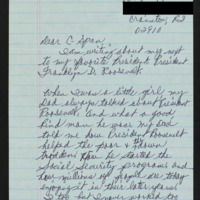 Cranston, RI
02910
Dear C Span,
I am writing about my
to my favorite President President
Franklin D. Roosevelt.
When I was a little girl my
Dad always talked about President
Roosevelt, and what a good
kind man he was. My Dad
told me how President Roosevelt
helped the poor &
how he started the
Social Security programs and
how millions of people are today
enjoying it in their later years.
Dad worked too